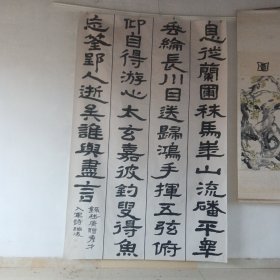 息徒蘭圃秣馬華山流磻平皋
垂綸長川目送歸鴻手揮五弦俯
仰自得游心太玄嘉彼釣叟得魚
忘筌郢人逝矣誰與盡言
錄嵇康贈秀才
入軍詩